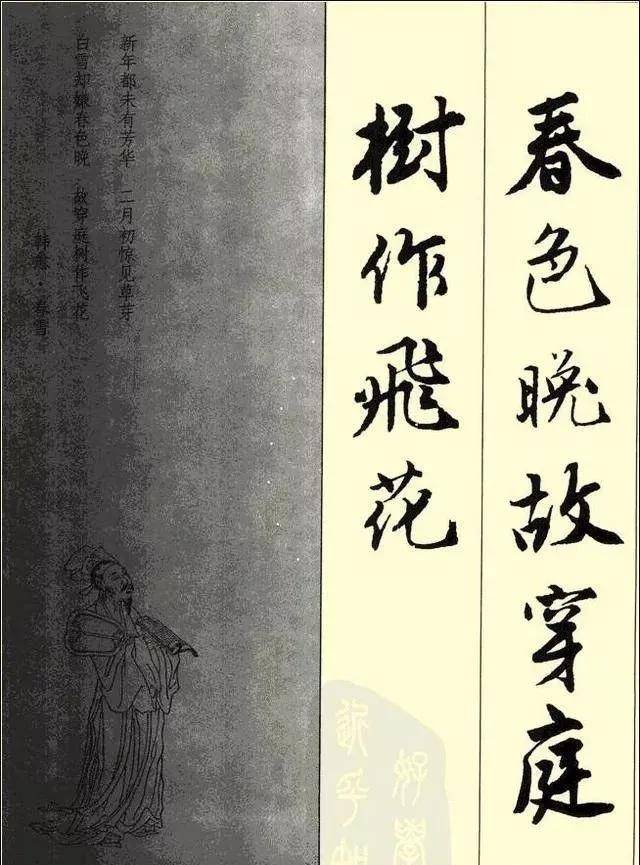 春色晚故穿庭
樹作飛花
新年都未有芳华 二月初惊见草芽
白雪却嫌春色晚 故穿庭树作飞花
韩愈·春雪
好學
近乎知